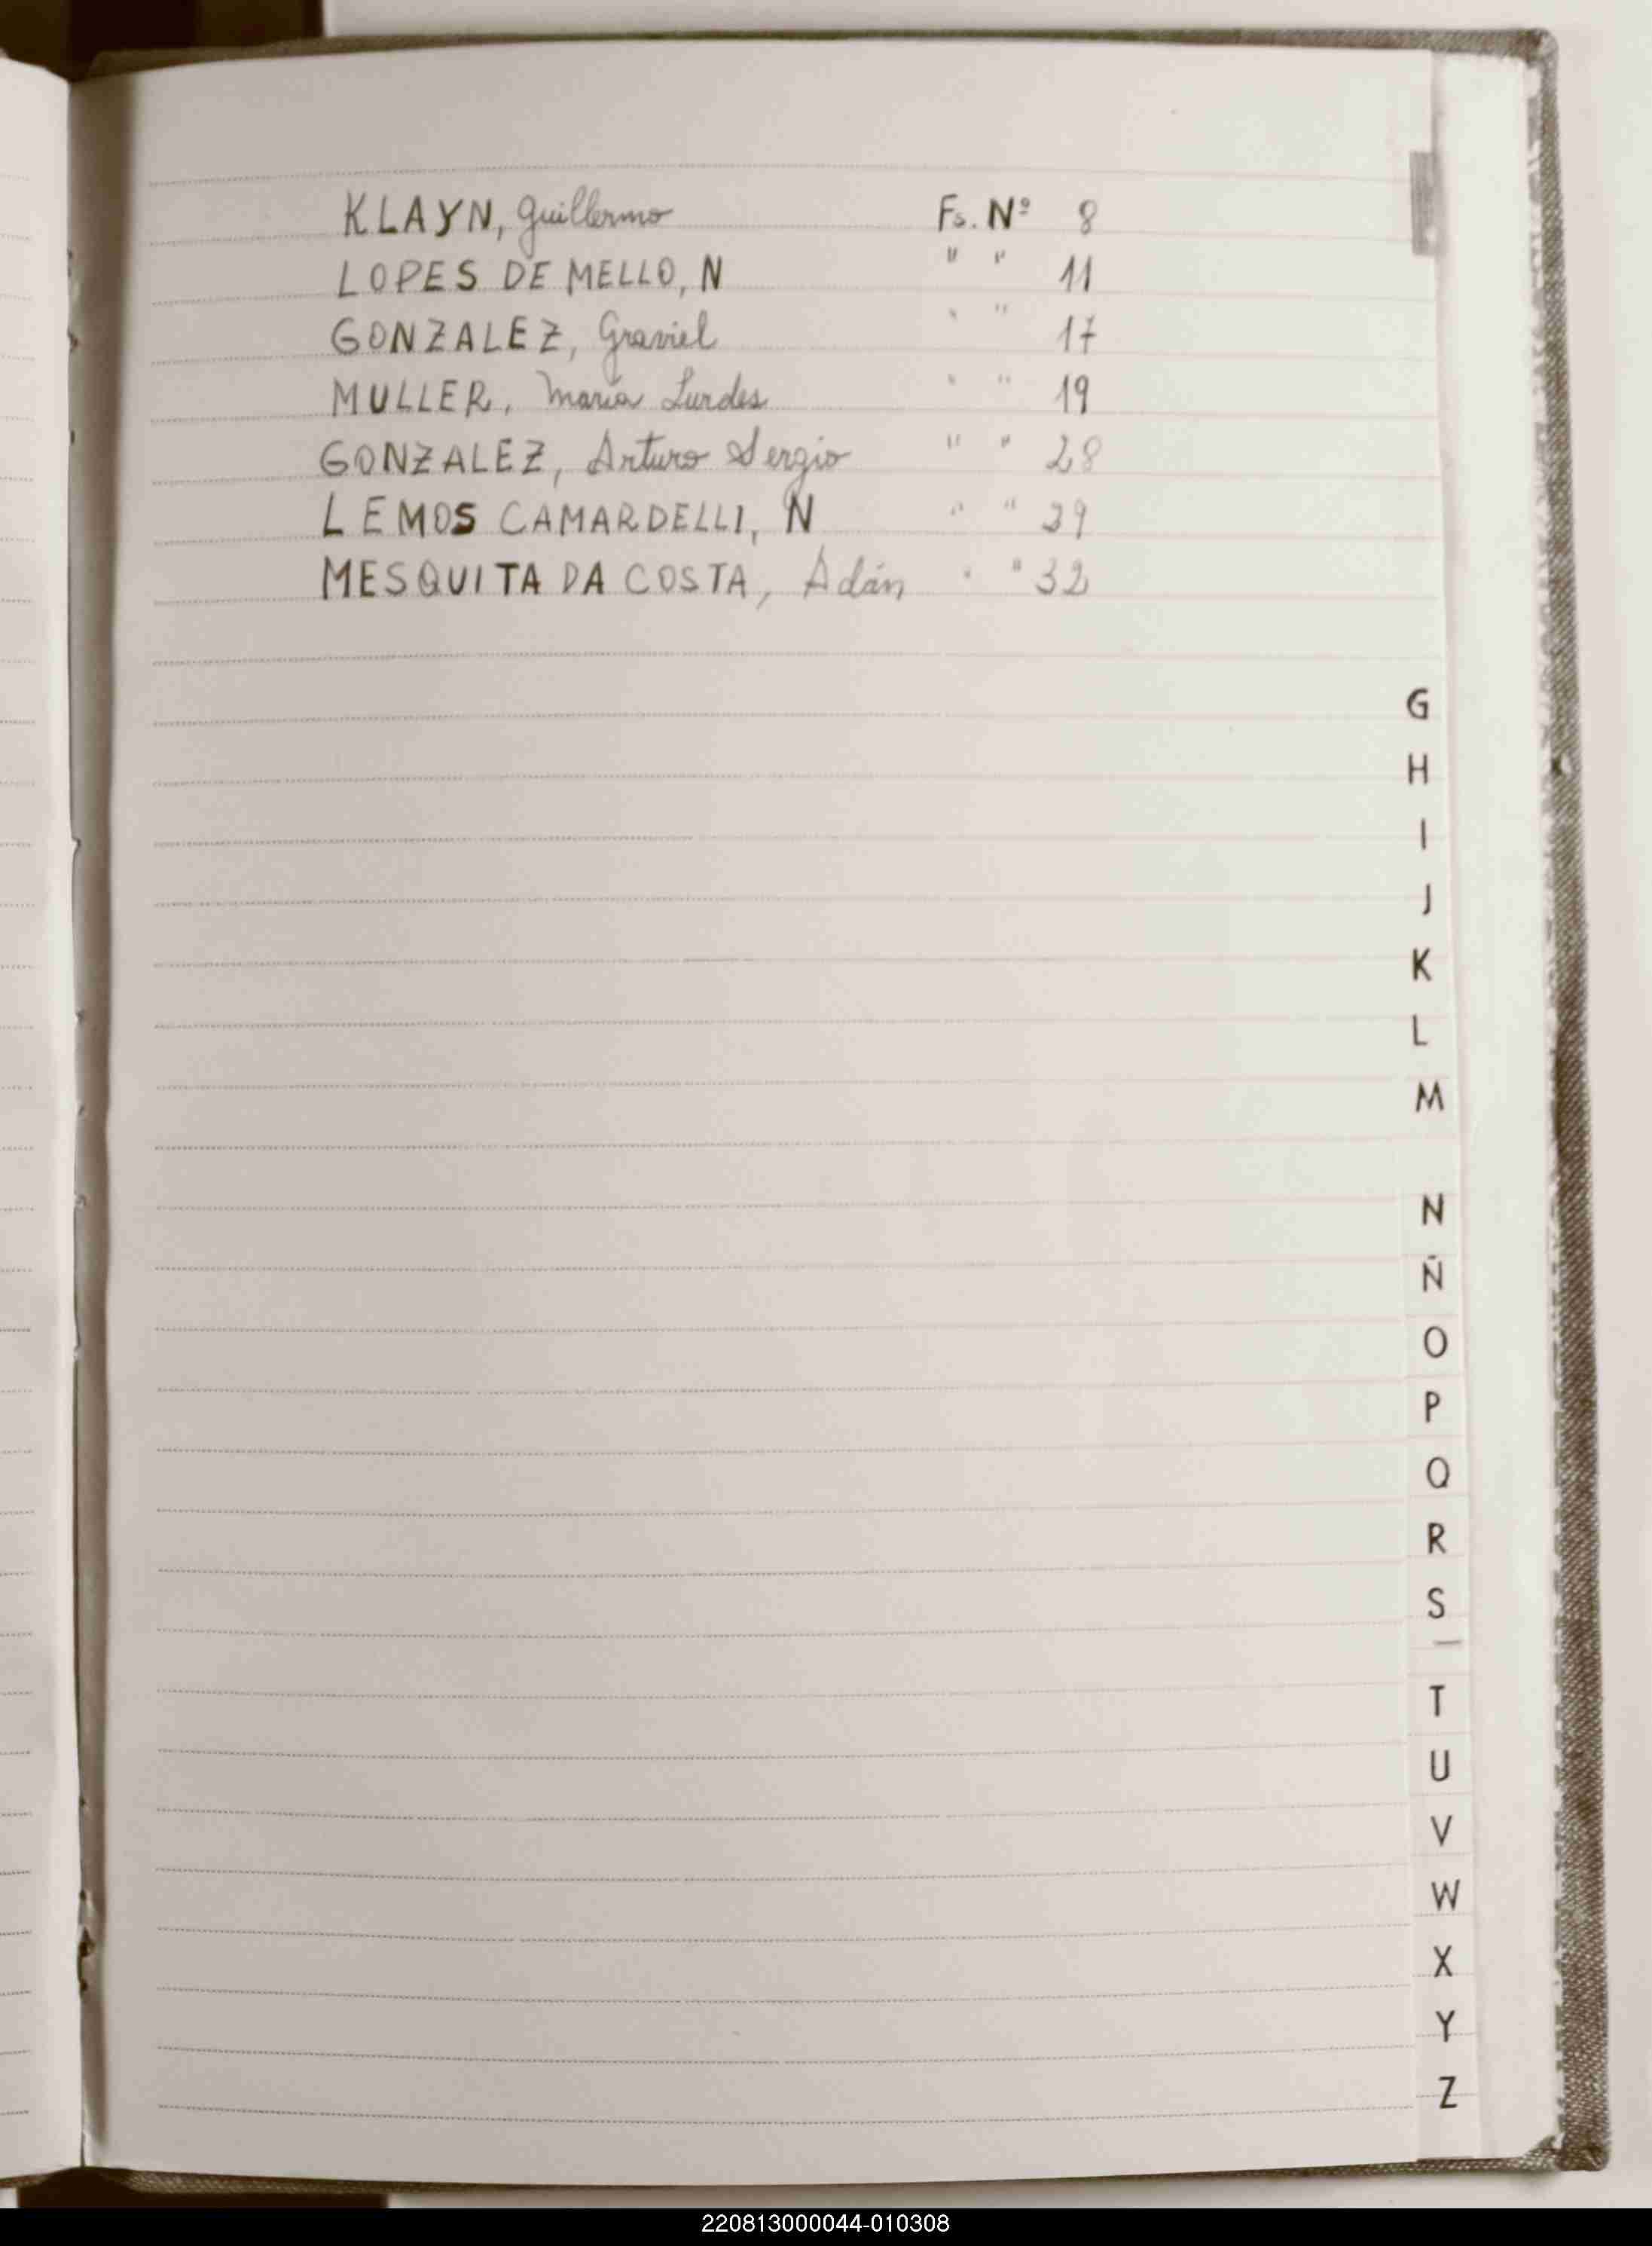 KLAYN, Guillermo Fs. Nº 8
LOPES DE MELLO, N " " 11
GONZALEZ, Graviel " " 17
MULLER, María Lurdes " " 19
GONZALEZ, Arturo Sergio " " 28
LEMOS CAMARDELLI, N " " 39
MESQUITA DA COSTA, Adán " " 32
G
H
I
J
K
L
M
N
Ñ
O
P
Q
R
S
T
U
V
W
X
Y
Z
220813000044-010308